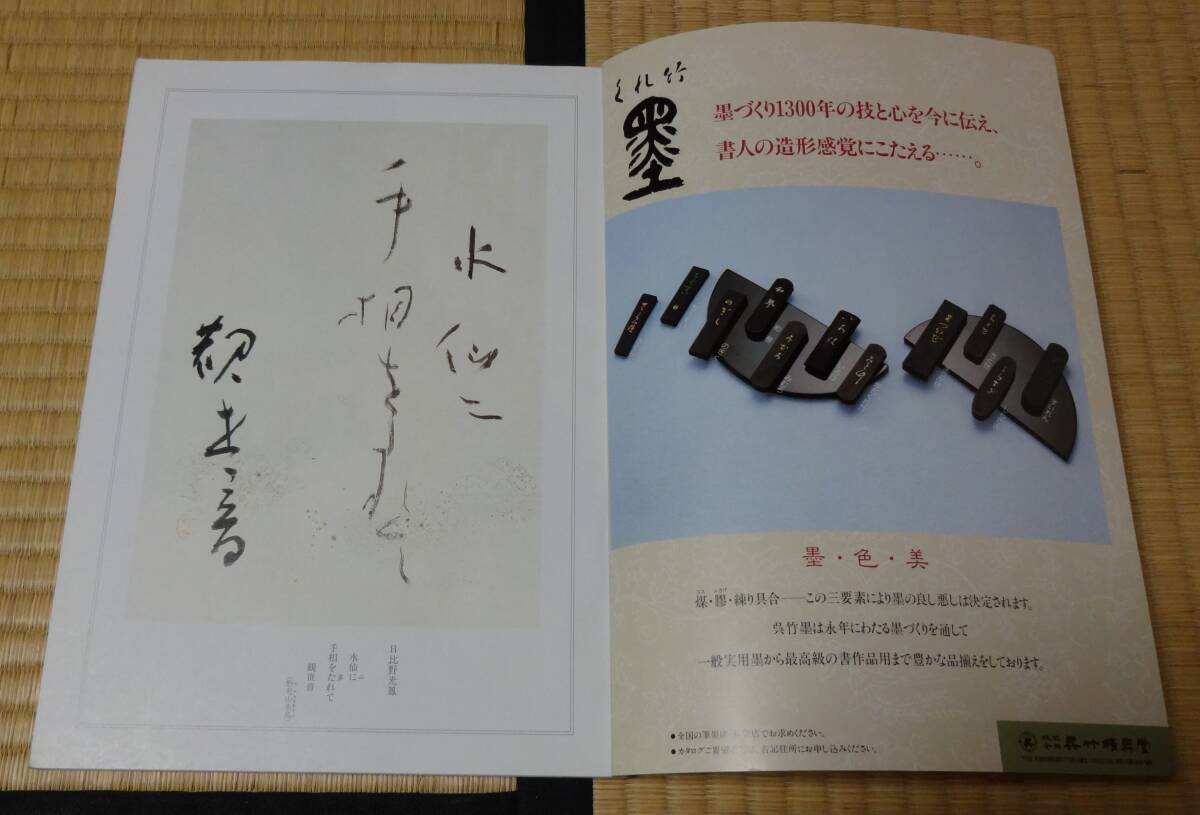 水仙二
手相をたれて
観世音
日比野光鳳
水仙に
ニ
手相をたれて
多
観世音
くれ竹
墨
墨づくり1300年の技と心を今に伝え、
書人の造形感覚にこたえる……。
和琴
いろは
墨・色・美
煤・膠・練り具合――この三要素により墨の良し悪しは決定されます。
呉竹墨は永年にわたる墨づくりを通して
一般実用墨から最高級の書作品用まで豊かな品揃えをしております。
●全国の筆墨
店でお求めください。
●カタログご要望
右記住所にお申し込みください。
株式会社 呉竹精昇堂